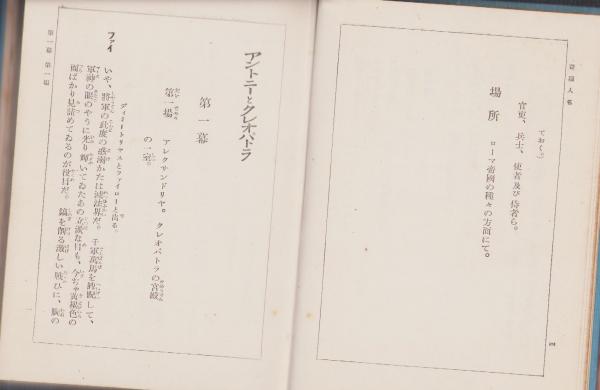 登場人物
ておく。)
官吏、兵士、使者及び侍者ら。
場所 ローマ帝國の種々の方面にて。
アントニーとクレオパトラ
第一幕
第一場 アレクサンドリヤ。クレオパトラの宮殿
の一室。
ディミートリヤスとファイロー出る。
ファイ いや、將軍の此度の惑溺かたは滅法界だ。千軍萬馬を睥睨して、
軍神の眼のやうに光り輝いてゐたあの立派な目も、今ぢゃ黄褐色の
面ばかり見詰めてゐるのが役目だ。鎬を削る激しい戰ひに、胸の
第一幕 第一場